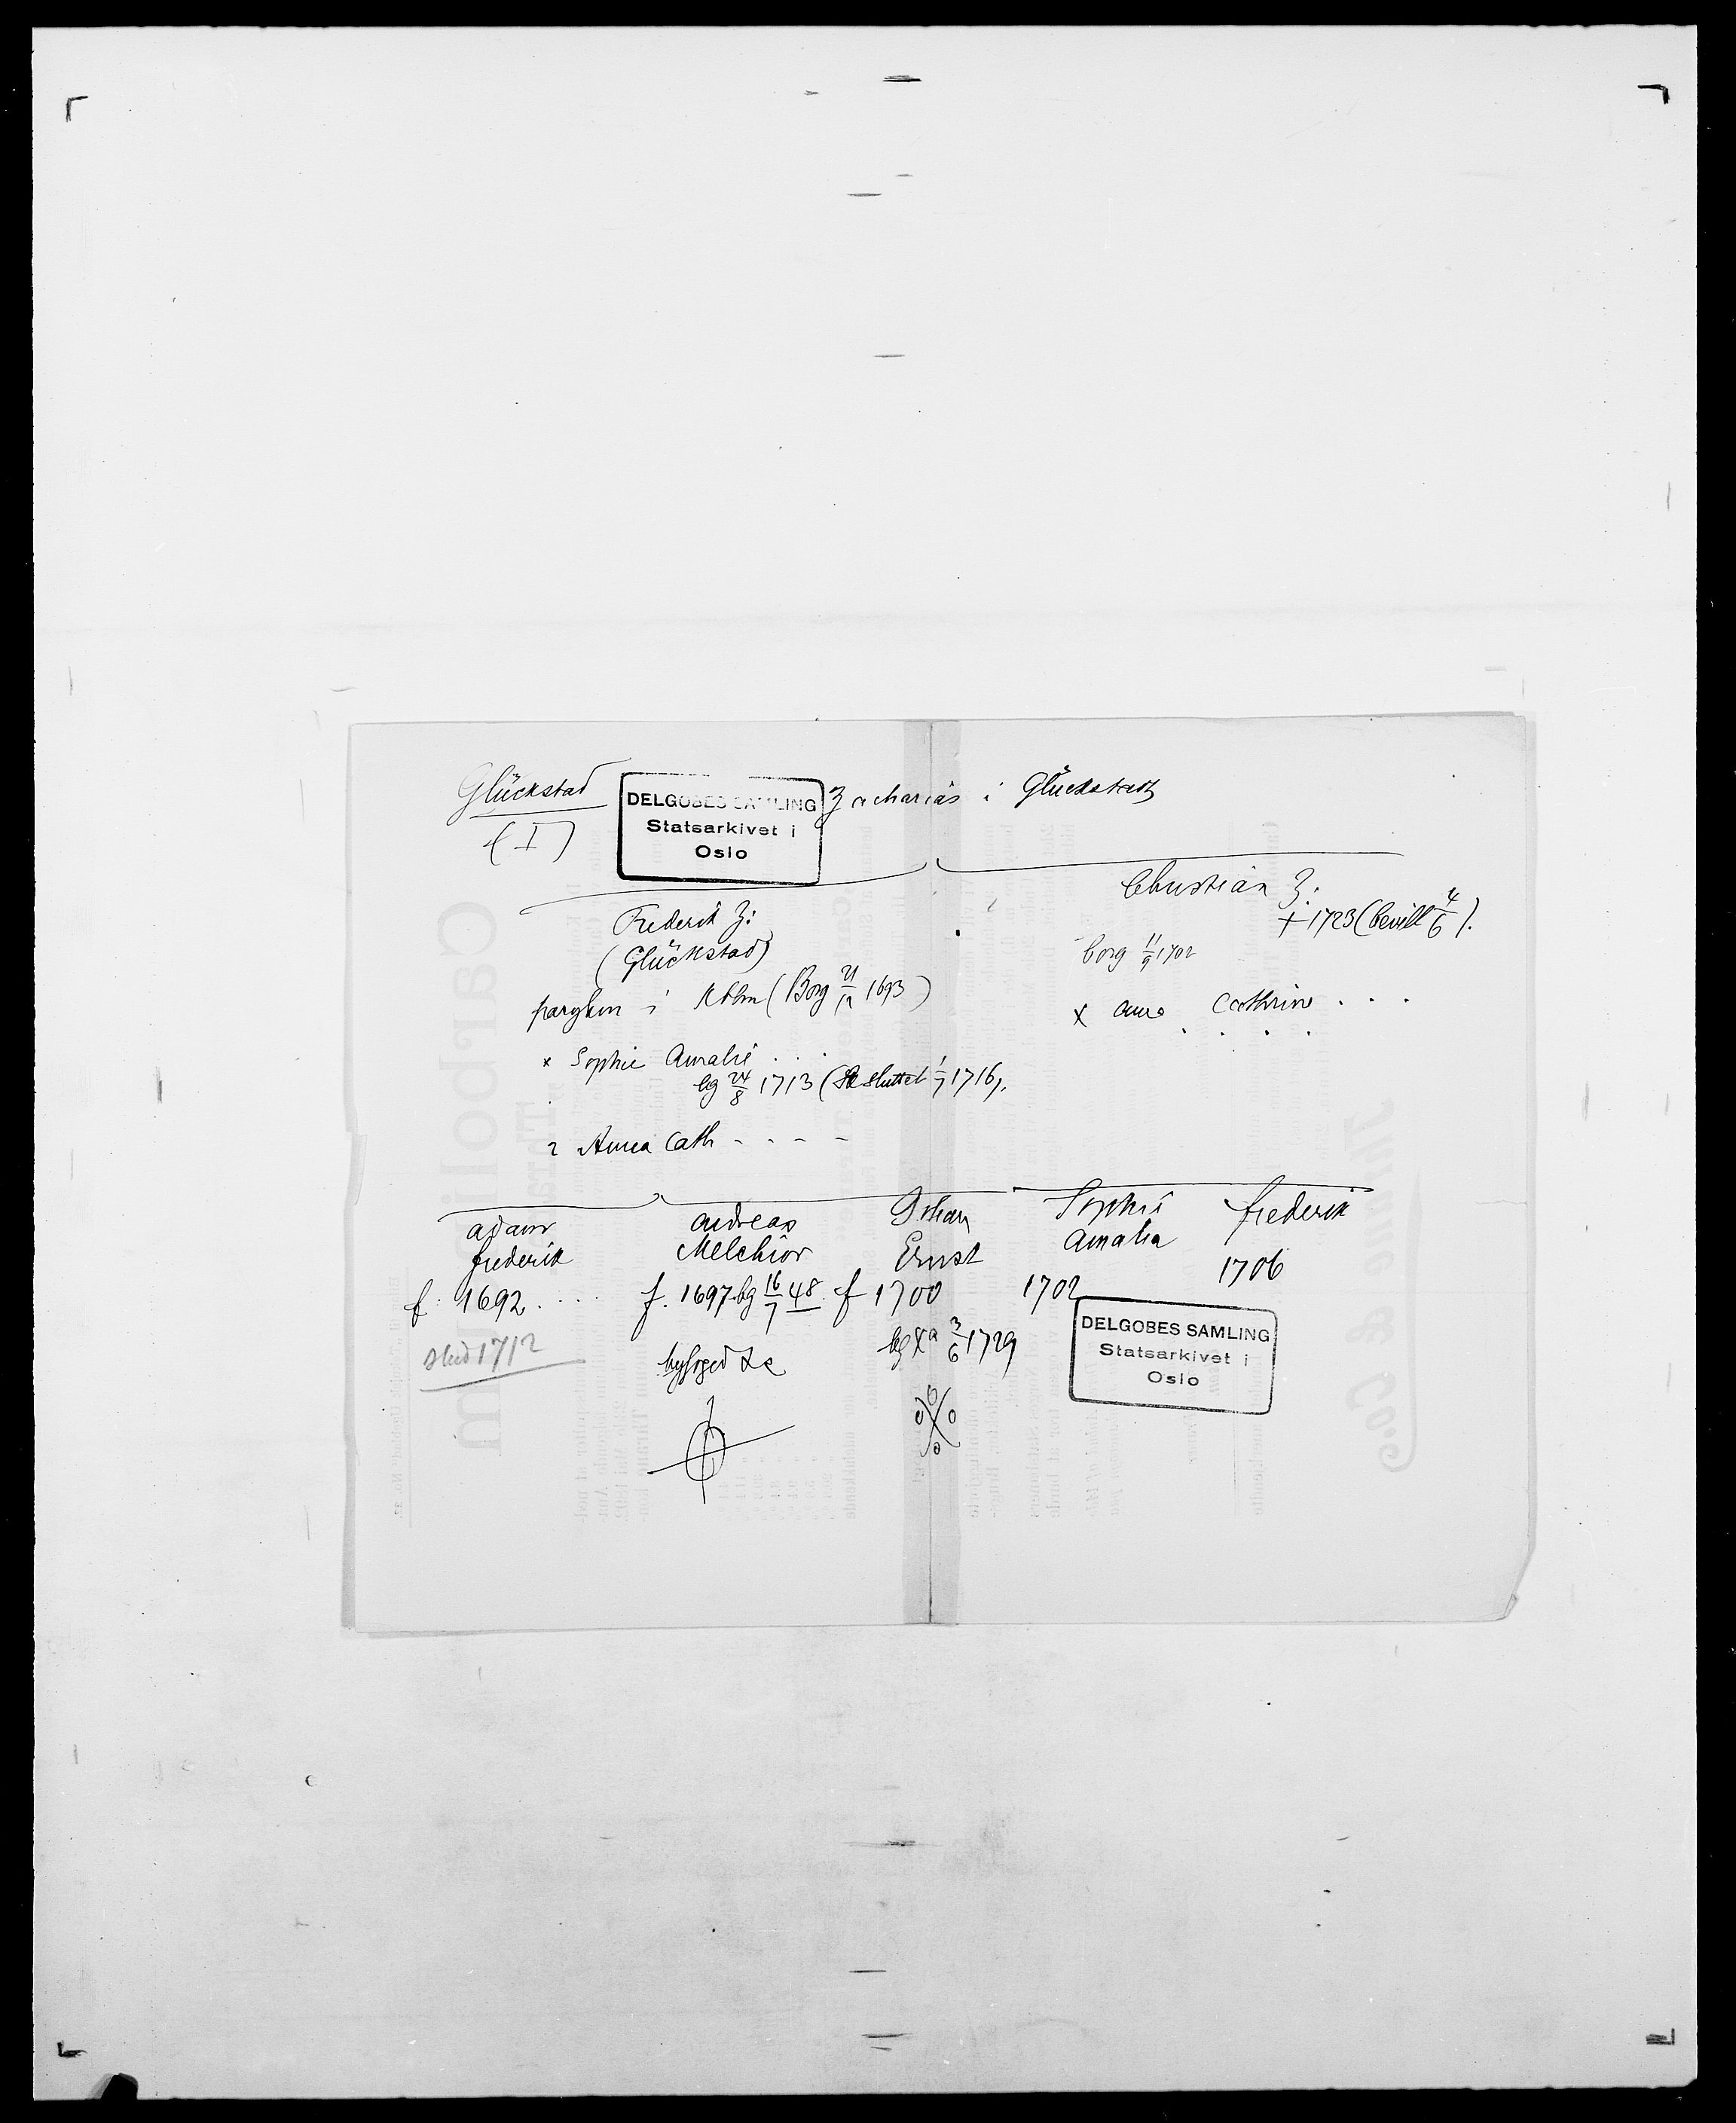 Glückstad
(I)
DELGOBES SAMLING
Statsarkivet i
Oslo
Zacharias i Glückstadt
Frederik Z:
(Glückstad)
parykm i Kbhm (Borg 21/12 1693)
x Sophie Amalie . . .
bg 24/8 1713 (Sk sluttet 1/7 1716).
2 Anna Cath - - - -
Christian Z.
+ 1723 (bevill 4/6).
borg 11/9 1702
x Anna Cathrine . . .
. . . .
Adam
Frederik
f. 1692 . . . .
sted 1712
Andreas
Melchior
f. 1697 bg 16/7 48.
Johan
Ernst
f 1700
bg 3/6 1729
Sophie
Amalia
1702
Frederik
1706
DELGOBES SAMLING
Statsarkivet i
Oslo